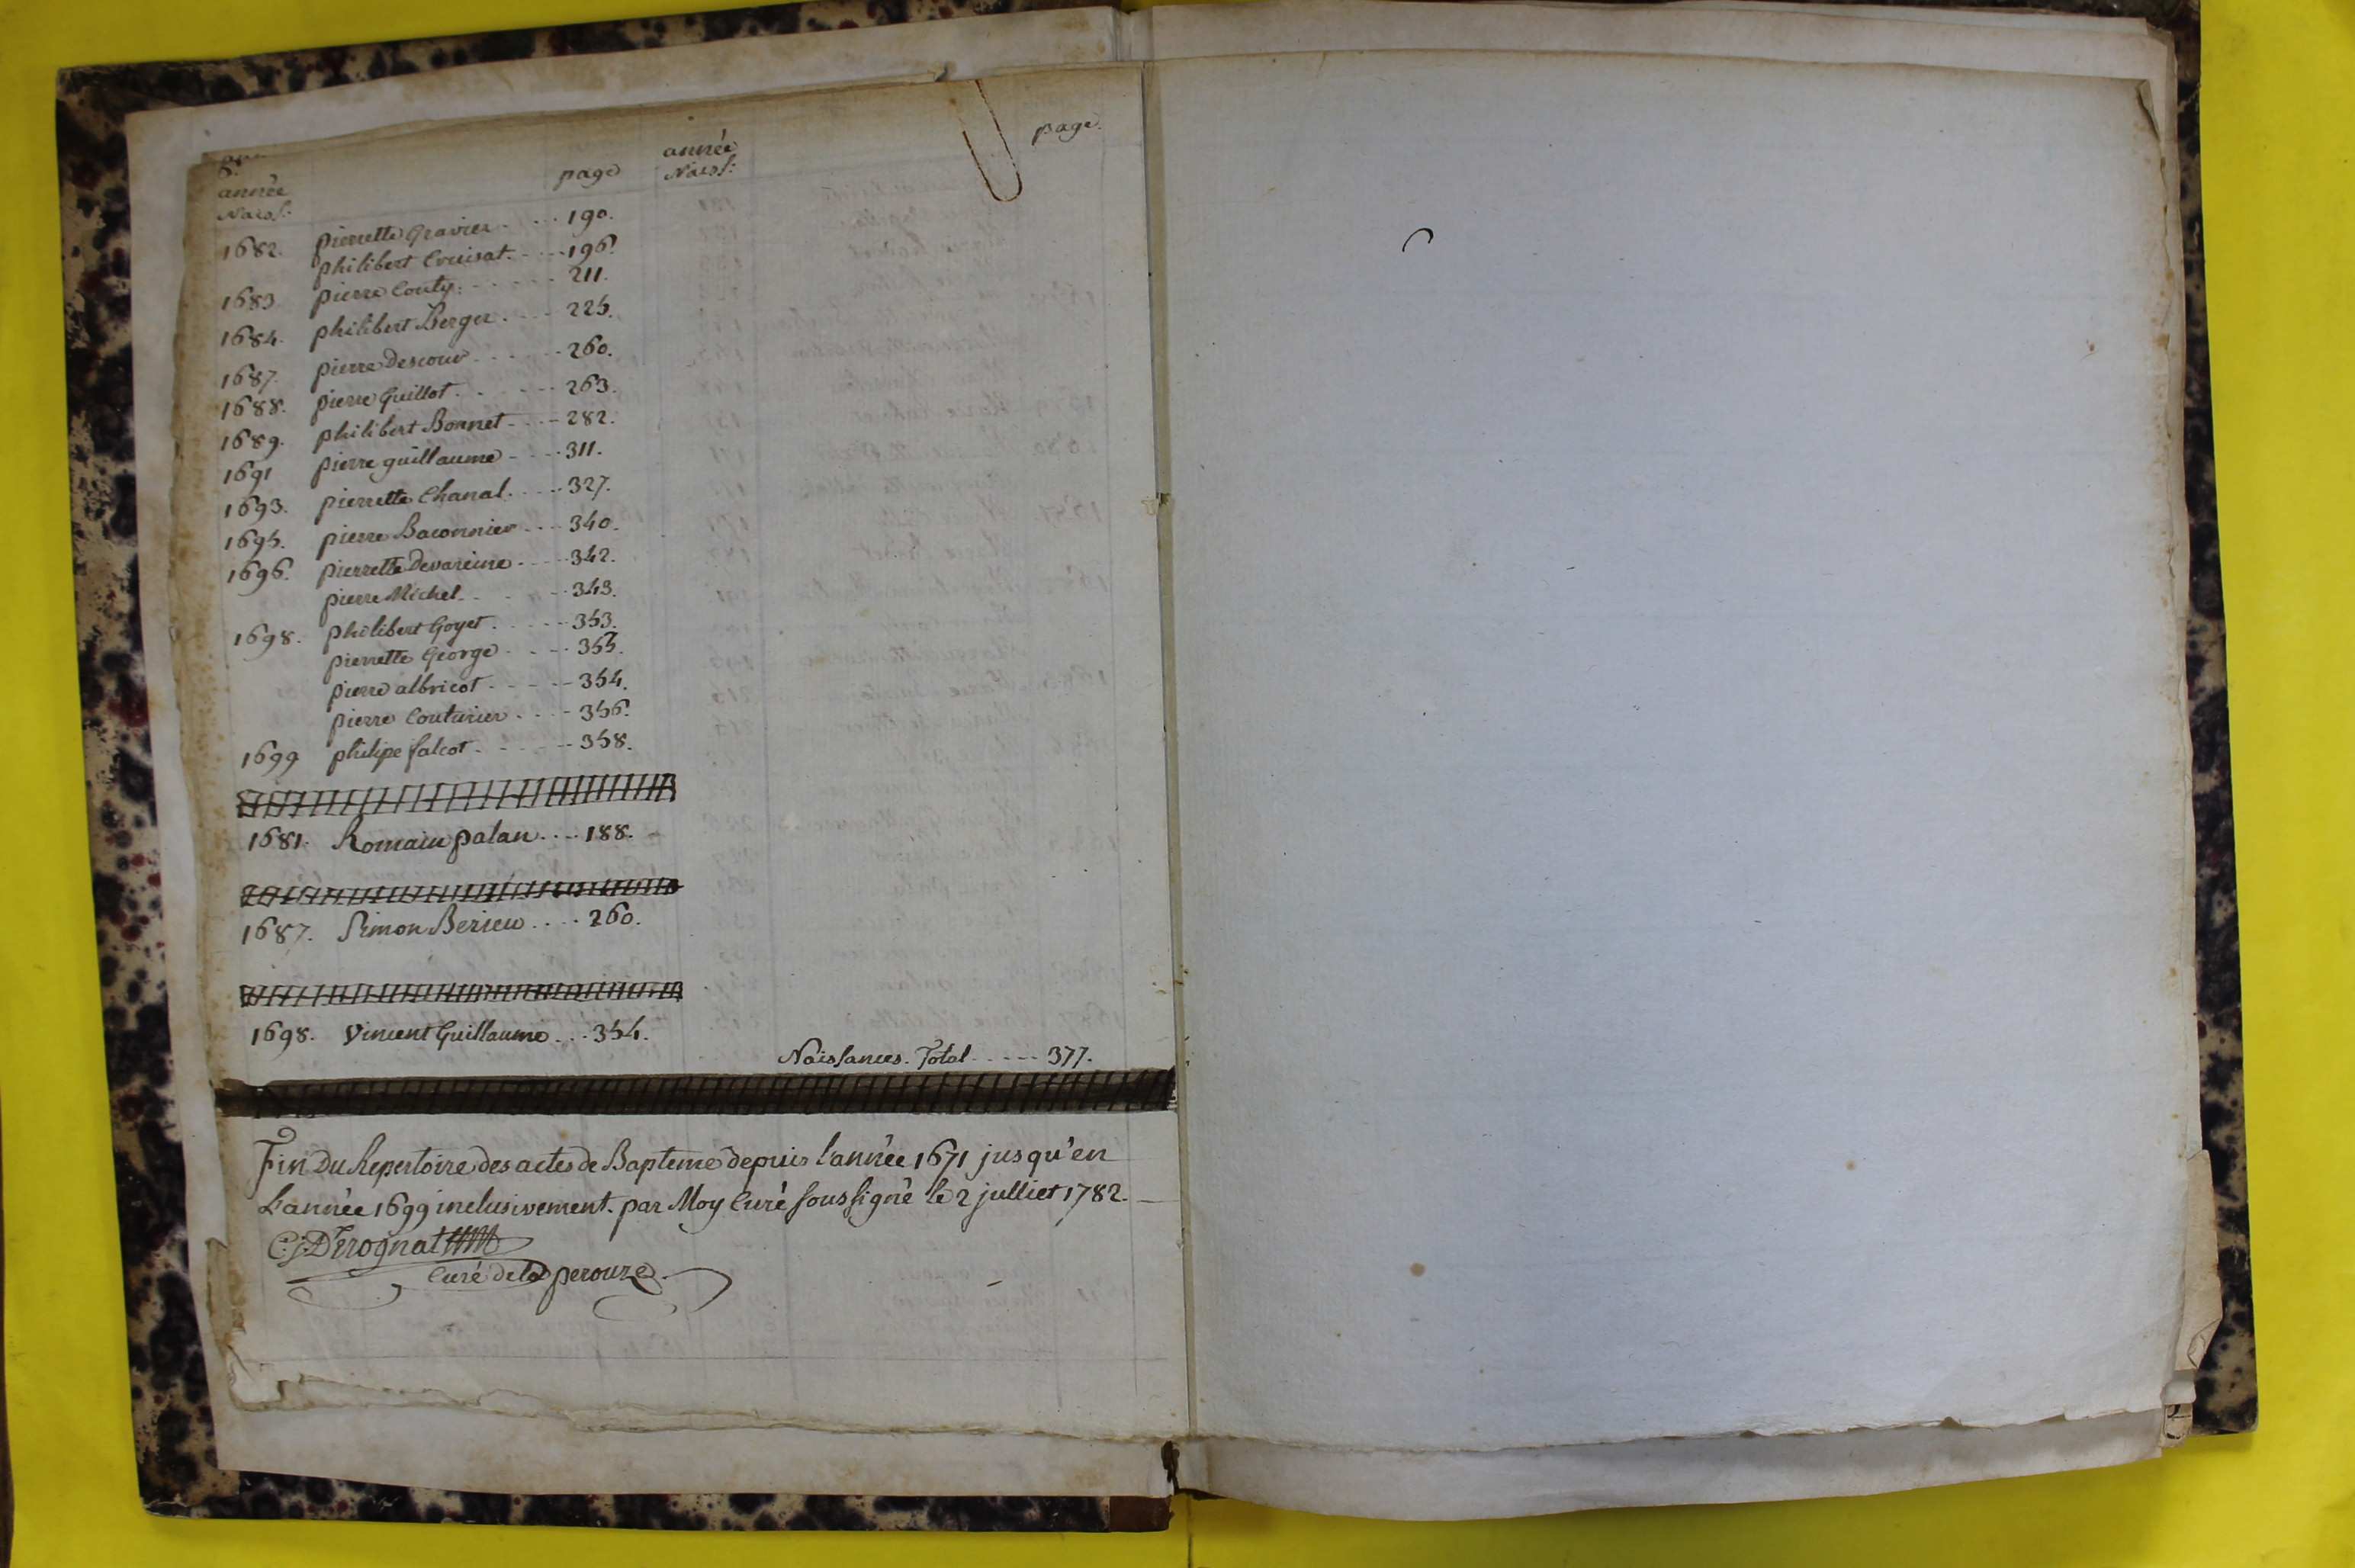 8.
année
Naiss:
page
année
Naiss:
page.
1682. pierrette Gravier - - - 190.
philibert Crouisat. - - - 196.
1683 pierre Couty: - - - - - 211.
1684. philibert Berger - - - 225.
1687. pierre Descour - - - - 260.
1688. pierre Guillot - - - - 263.
1689. philibert Bonnet - - - 282.
1691 pierre guillaume - - - 311.
1693. pierrette Chanal - - - 327.
1695. pierre Baconnier - - - 340.
1696. pierrette Devareine - - - 342.
pierre Michel - - - - 343.
1698. philibert Goyet - - - - 353.
pierrette George - - - 355.
pierre albricot - - - - 354.
pierre Couturier - - - 356.
1699 philipe falcot - - - - 358.
1681. Romain palan - - - 188.
1687. Simon Berieu - - - 260.
1698. Vincent Guillaume - - - 354.
Naissances. Total - - - - - 377.
Fin Du Repertoire des actes de Bapteme depuis l'année 1671 jusqu'en
L'année 1699 inclusivement. par Moy Curé soussigné le 2 julliet 1782.
C. J. Derognat
Curé de la perouze